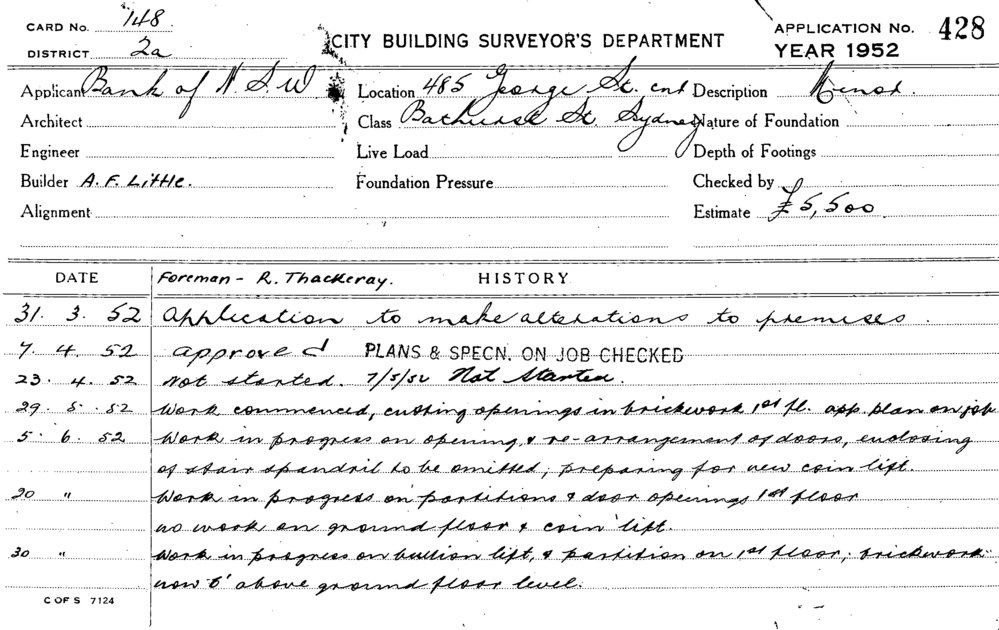 CARD No. 148
DISTRICT 2a
CITY BUILDING SURVEYOR'S DEPARTMENT
APPLICATION No. 428
YEAR 1952
Applicant Bank of N.S.W Location 485 George St. cnr Description Minor.
Architect Class Bathurst St Sydney Nature of Foundation
Engineer Live Load Depth of Footings
Builder A.F. Little. Foundation Pressure Checked by
Alignment Estimate £5,500
DATE Foreman - R. Thackeray. HISTORY
31. 3. 52 Application to make alterations to premises.
7. 4. 52 approved PLANS & SPECN. ON JOB CHECKED
23. 4. 52 Not started. 7/5/52 Not Started.
29. 5. 52 Work commenced, cutting openings in brickwork 1st fl. app. plan on job
5. 6. 52 Work in progress on opening & re-arrangement of doors, enclosing
of stair spandril to be omitted; preparing for new coin lift.
20 " Work in progress on partitions & door openings 1st floor
no work on ground floor & coin lift.
30 " Work in progress on bullion lift, & partition on 1st floor; brickwork
now 6' above ground floor level.
C OF S 7124